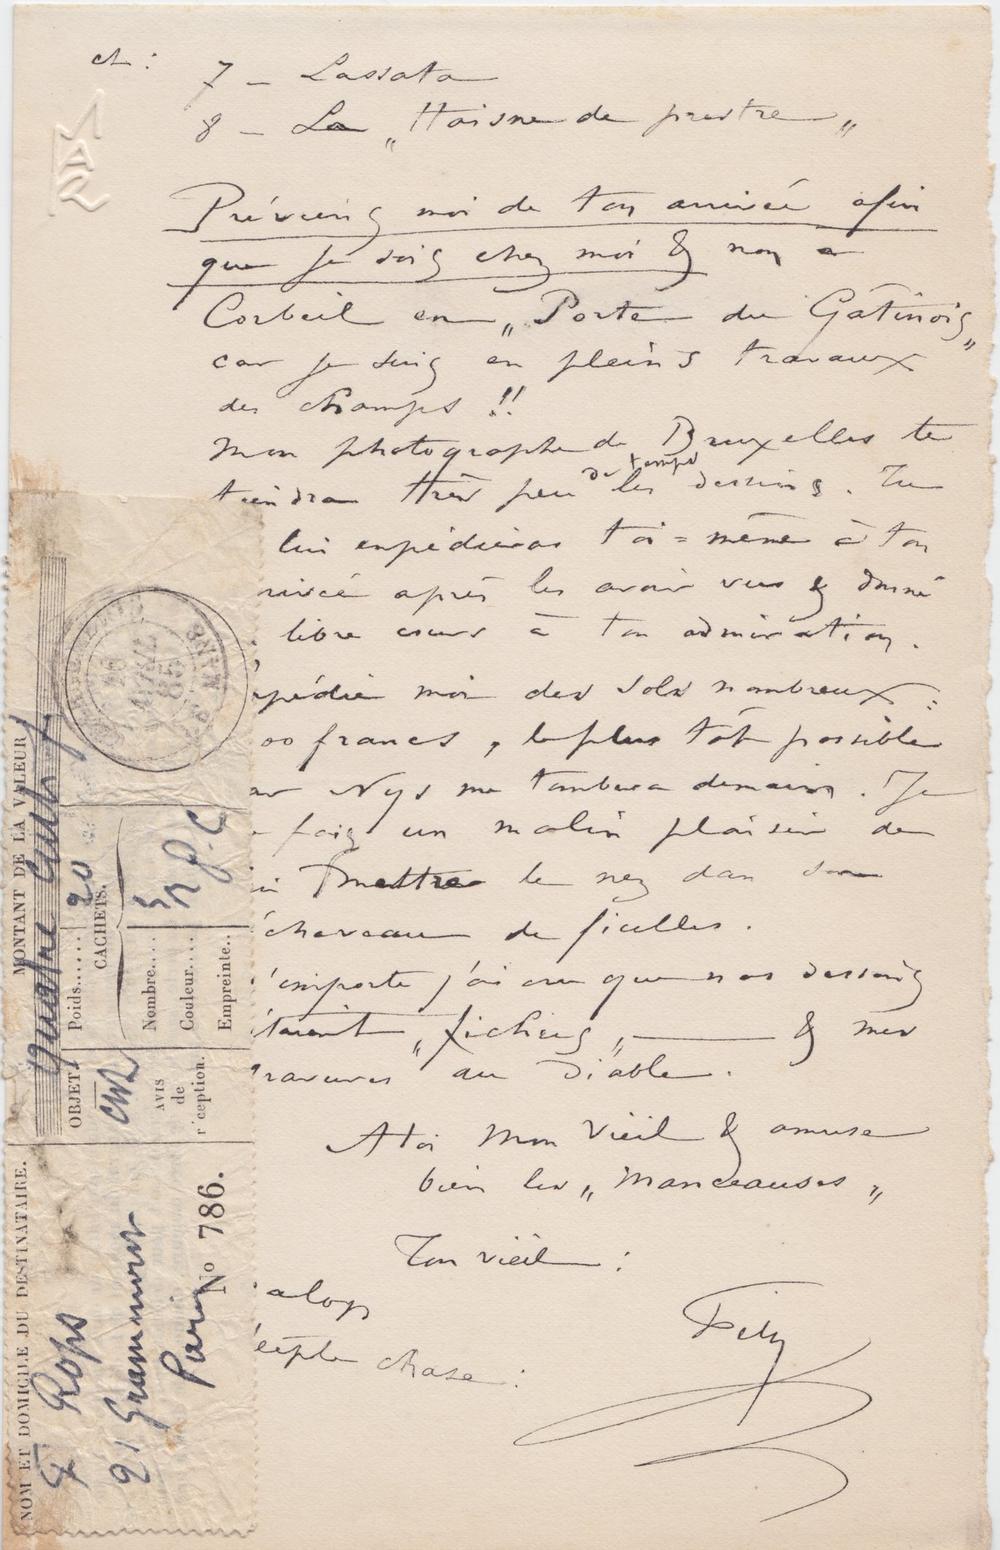 ch :
7 – Lassata
8 – La „Haisne de prestre„
MAR
Préviens moi de ton arrivée afin
que je sois chez moi & non à
Corbeil en „Porte du Gâtinois„
car je suis en pleins travaux
des champs !!
Mon photographe de Bruxelles te
tiendra très peu de temps les dessins. Tu
lui expédieras toi=même à ton
rivée après les avoir vus & donné
libre cours à ton admiration.
xpédie moi des sols nombreux :
00 francs, le plus tôt possible
ar Nys me tombera demain. Je
fais un malin plaisir de
mettre le nez dans son
écheveau de ficelles.
'importe j'ai cru que nos dessins
étaient „fichus„ — & mes
gravures au Diable.
A toi Mon Vieil & amuse
bien les „Manceauses„
Ton vieil :
Fély
alop
eeple chase :
MONTANT DE LA VALEUR
quatre cents f
Poids...... 20
CACHETS.
Nombre.... 5
Couleur.... n
Empreinte.. J. C
OBJET. ch
AVIS
de
réception.
NOM ET DOMICILE DU DESTINATAIRE.
F Rops
21 Grammont
Paris
No 786.